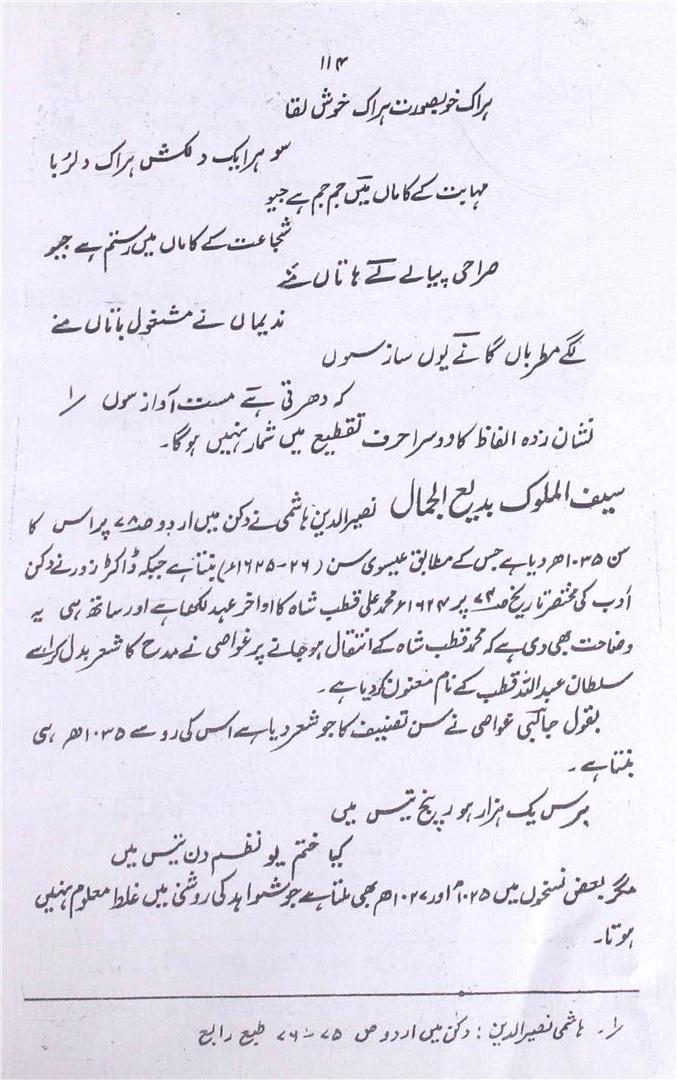 ۱۱۴
ہراک خوبصورت ہراک خوش لقا
سو ہرایک دلکش ہراک دلربا
مہابت کے کاماں میں جم جم ہے جیو
شجاعت کے کاماں میں رستم ہے جیو
صراحی پیالے کے ہاتاں منے
ندیماں نے مشغول باتاں منے
لگے مطرباں گانے یوں ساز سوں
کہ دھرتی ہے مست آواز سوں ؍۱
نشان زدہ الفاظ کا دوسرا حرف تقطیع میں شمار نہیں ہوگا۔
سیف الملوک بدیع الجمال نصیرالدین ہاشمی نے دکن میں اردو صـ۷۸ پر اس کا
سن ۱۰۳۵ھ دیا ہے جس کے مطابق عیسوی سن (۲۶-۱۶۲۵ء) بنتا ہے جبکہ ڈاکٹر زور نے دکن
ادب کی مختصر تاریخ صـ۷۴ پر ۱۶۲۴ء محمد علی قطب شاہ کا اواخر عہد لکھا ہے اور ساتھ ہی یہ
وضاحت بھی دی ہے کہ محمد قطب شاہ کے انتقال ہو جانے پر غواصی نے مدح کا شعر بدل کر اسے
سلطان عبداللہ قطب کے نام معنون کر دیا ہے۔
بقول جالبی غواصی نے سن تصنیف کا جو شعر دیا ہے اس کی رو سے ۱۰۳۵ھ ہی
بنتا ہے۔
برس یک ہزار ہور پنج تیس میں
کیا ختم یو نظم دن تیس میں
مگر بعض نسخوں میں ۱۰۲۵ھ اور ۱۰۲۷ھ بھی ملتا ہے جو شواہد کی روشنی میں غلط معلوم نہیں
ہوتا۔
؍۱۔ ہاشمی نصیرالدین : دکن میں اردو ص ۷۵-۷۶ طبع رابع